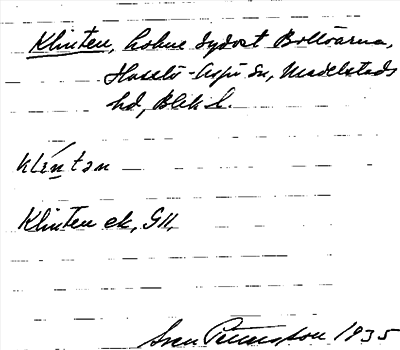 Klinten, holme sydost Bollöarna,
Hasslö-Aspö sn, Medelstads
hd, Blek. l.
klíntən
Klinten ek, GK,
Sven Petersson 1935